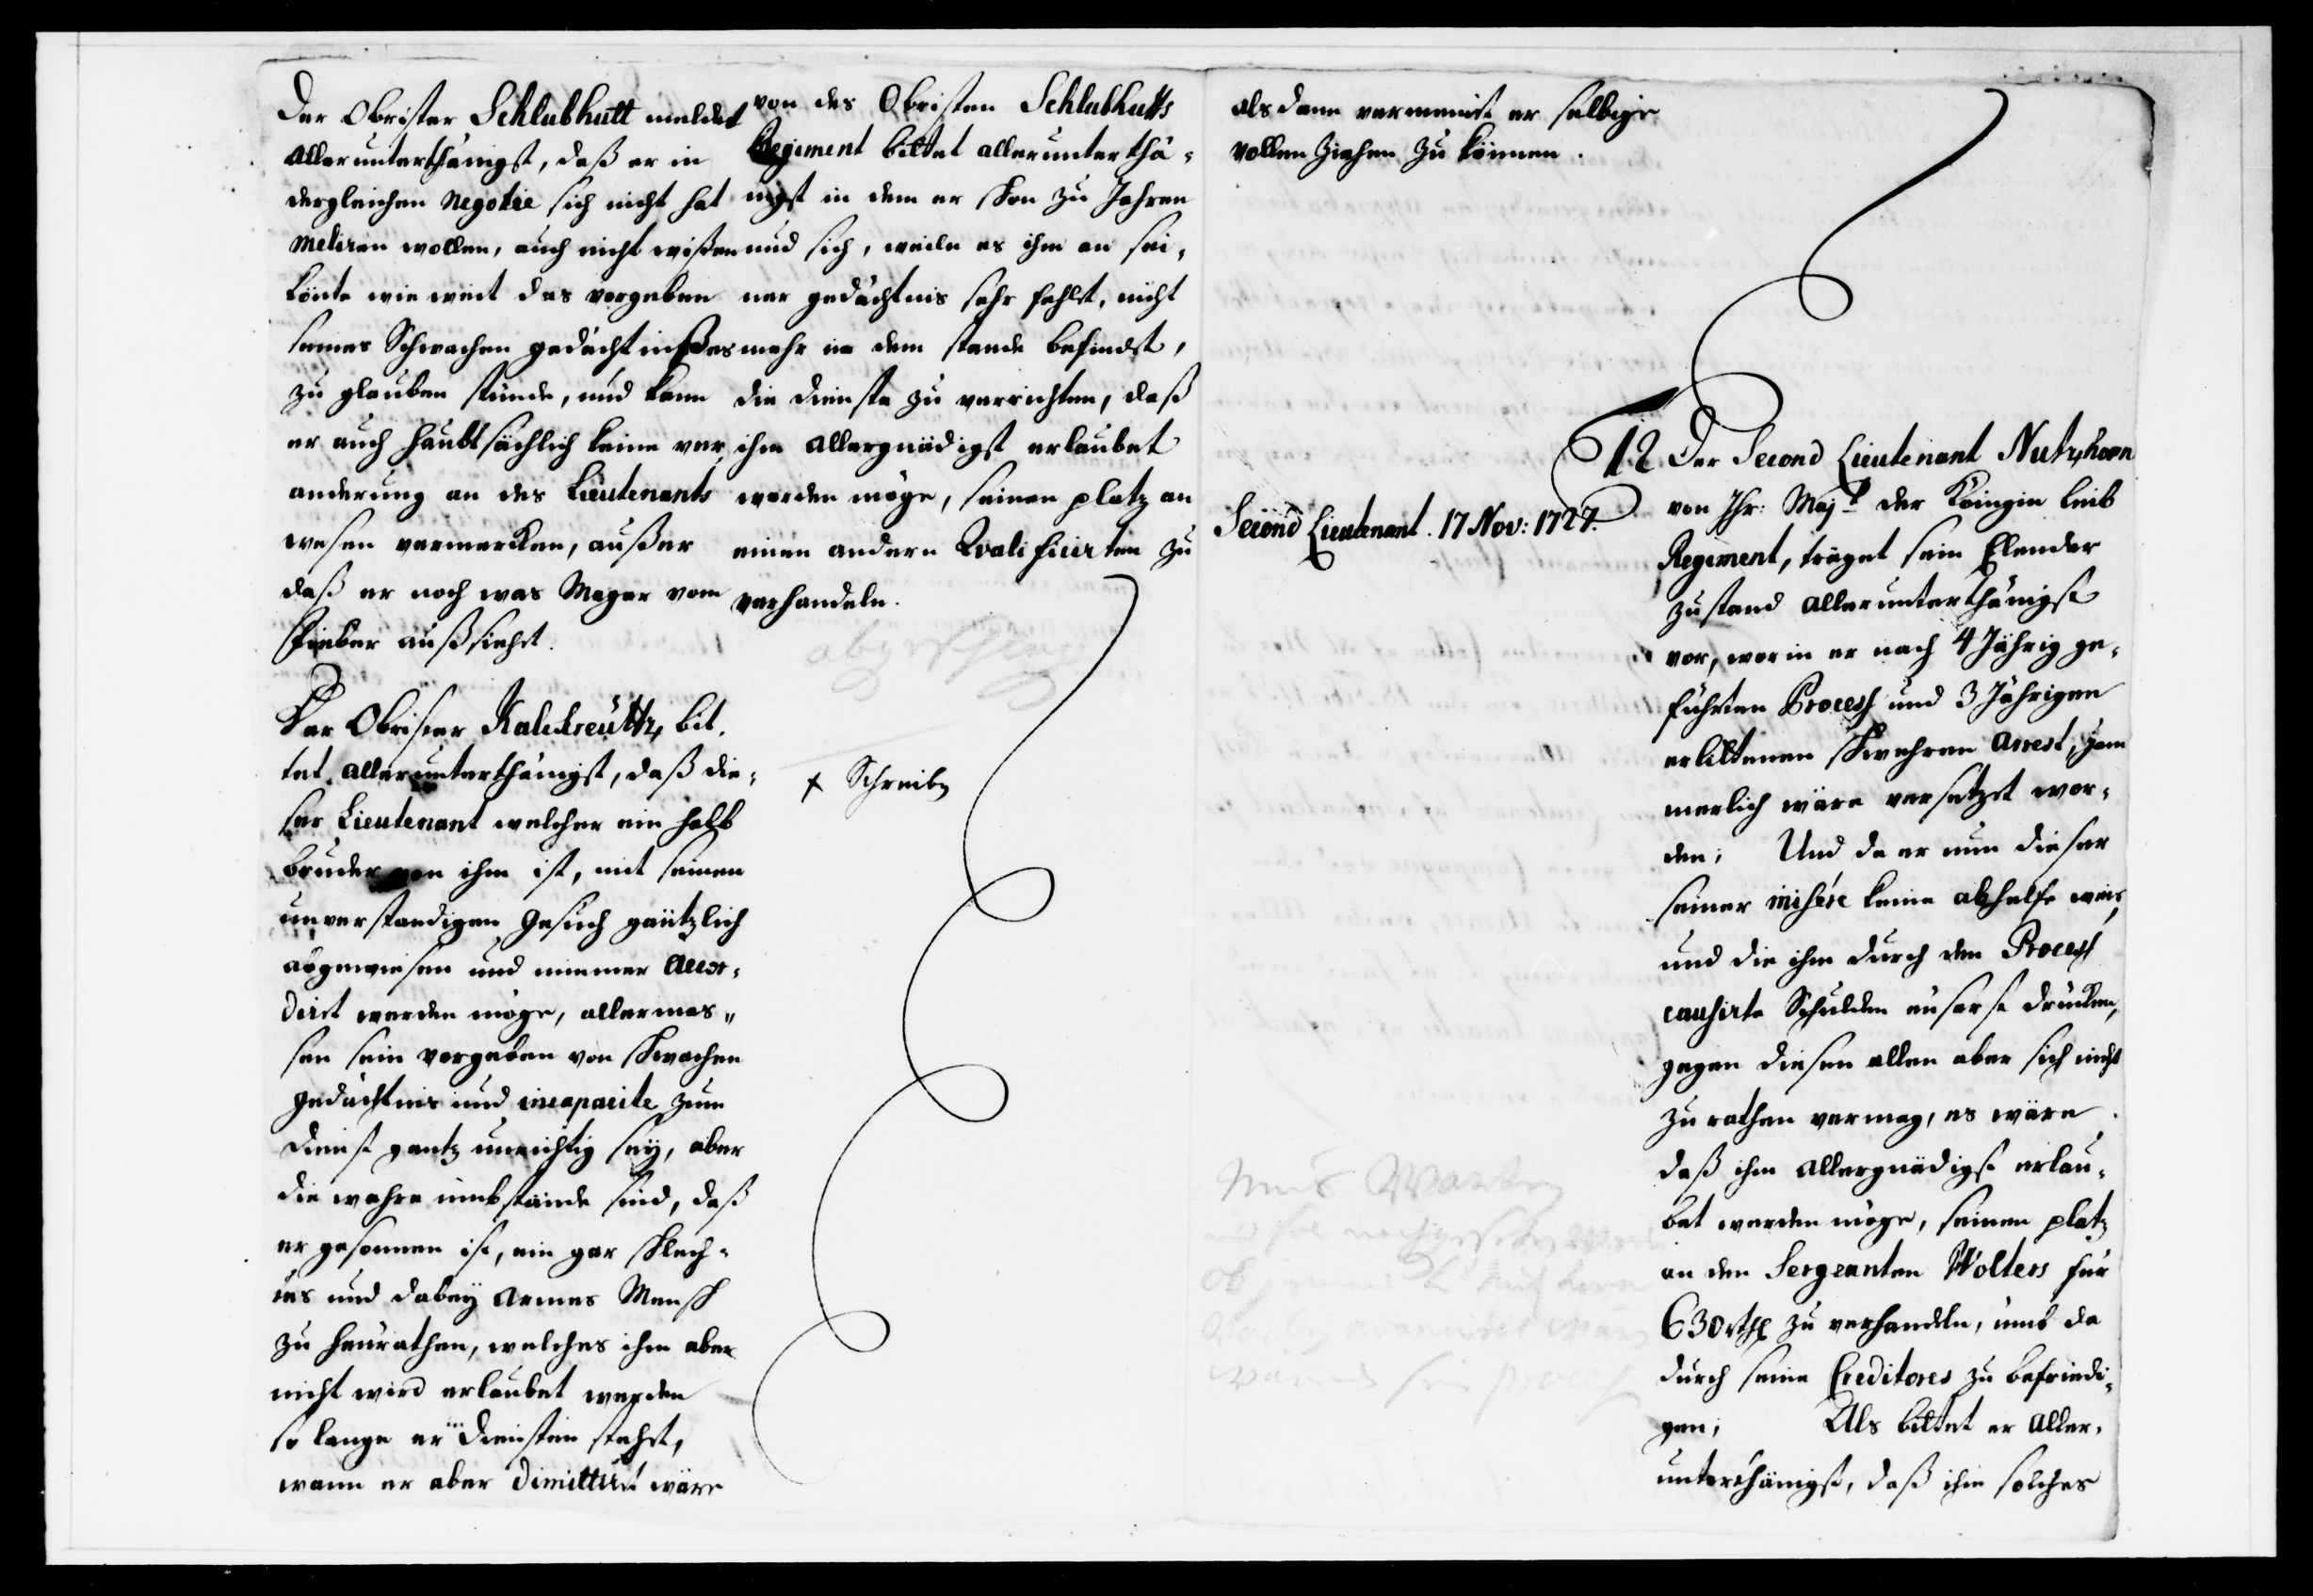 Der Obrister Schlubhutt meldet
allerunterthänigst, daß er in
dergleichen Negotie sich nicht hat
meliren wollen, auch nicht wißen
könte wie weit das vorgeben
seines Schwachen gedächtnißes
zu glauben stünde, und kann
er auch haubtsächlich keine ver„
anderung an des Lieutenants
wesen vermercken, außer
daß er noch was Mager vom
fieber außsiehet.
Der Obrister Kalckreuttz, bit„
tet allerunterthänigst, daß die„
ser Lieutenant welcher ein halb
bruder von ihm ist, mit seinen
unverstandigen gesuch gäntzlich
abgewiesen und nimmer accor„
dirt werden möge, allermas„
sen sein vorgeben von schwachen
gedächtnis und incapacite zum
dienst gantz unrichtig sey, aber
die wahre umbstände sind, daß
er gesonnen ist, ein gar schlech„
tes und dabey armes Mensch
zu heurathen, welches ihm aber
nicht wird erlaubet werden
so lange er in diensten stehet,
wann er aber dimittirt wäre
von des Obristen Schlubhutts
Regiment bittet allerunterthä„
nigst in dem er schon zu Jahren
und sich, weiln es ihm an sei„
ner gedächtnis sehr fehlet, nicht
mehr in dem stande befindet,
die dienste zu verrichten, daß
ihm allergnädigst erlaubet
werden möge, seinen platz an
einen andern Qvalificirten zu
verhandeln.
abgeschlagen
+ Schreiben
als dann vermeint er selbige
vollenziehen zu können.
Second Lieutenant. 17 Nov: 1727.
12. Der Second Lieutenant Nutzhorn
von Ihr: Majt der Königin leib
Regiment, träget sein Elender
zustand allerunterthänigst
vor, worin er nach 4 Jährig ge„
führten Process und 3 Jährigen
erlittenen schwehren Arrest, jäm
merlich wäre versetzet wor„
den; Und da er nun dieser
seiner misére keine abhelfe weis,
und die ihm durch den Process
causirte Schulden euserst drücken,
gegen diesen allen aber sich nicht
zu rathen vermag, es wäre
daß ihm allergnädigst erlau„
bet werden möge, seinen platz
an den Sergeanten Wolters für
630 rthl zu verhandeln, umb da
durch seine Creditores zu befriedi„
gen; Als bittet er aller„
unterthänigst, daß ihm solches
Mus Warten